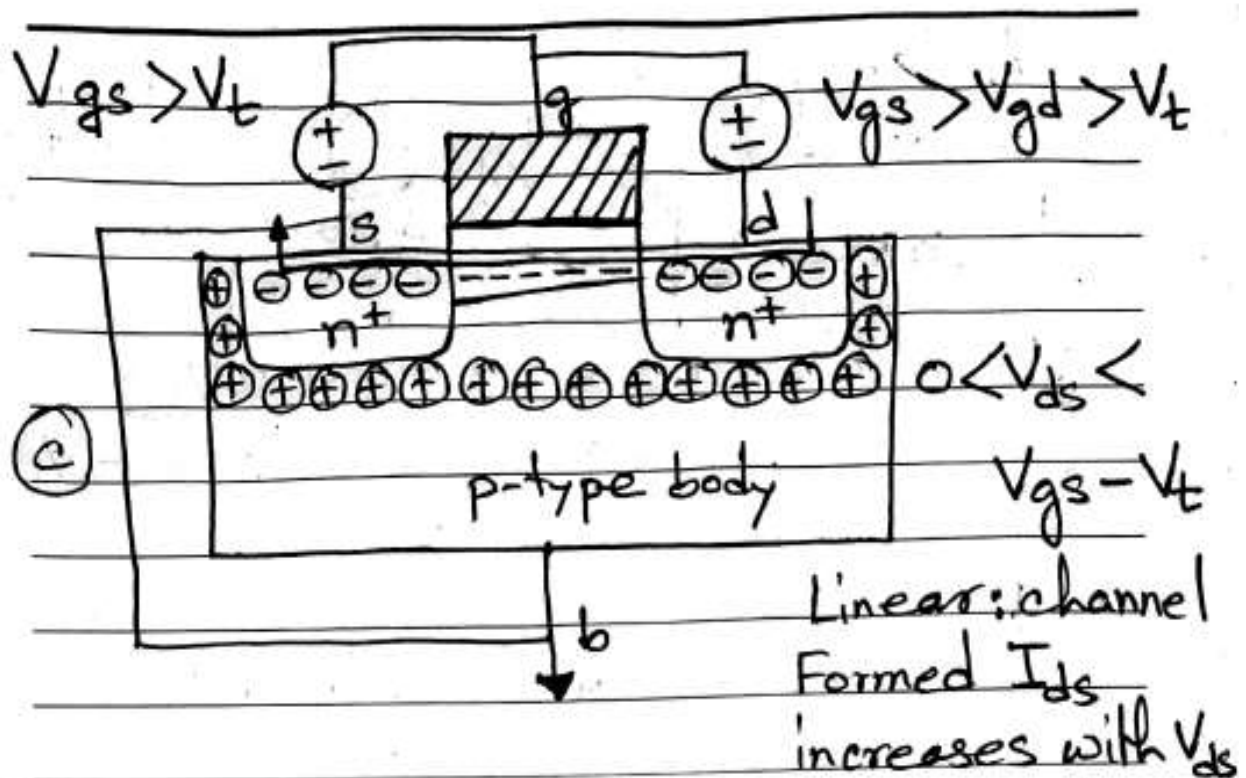 Vgs > Vt
Vgs > Vgd > Vt
g
s
d
n+
n+
0 < Vds <
Vgs - Vt
c
p-type body
b
Linear: channel
Formed Ids
increases with Vds